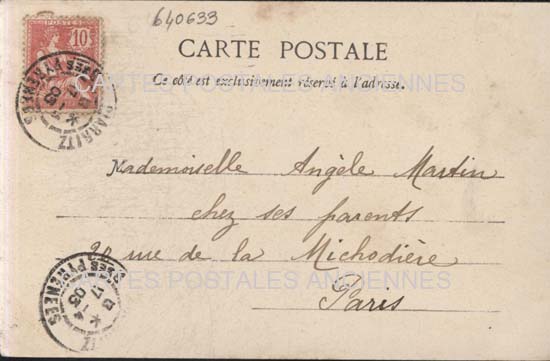 640633
POSTES
10
CARTE POSTALE
Ce côté est exclusivement réservé à l'adresse.
CARTES POSTALES ANCIENNES
BIARRITZ
BSES PYRENEES
03
Mademoiselle Angèle Martin
chez ses parents
20 rue de la Michodière
Paris
CARTES POSTALES ANCIENNES
BSES PYRENEES
17
03